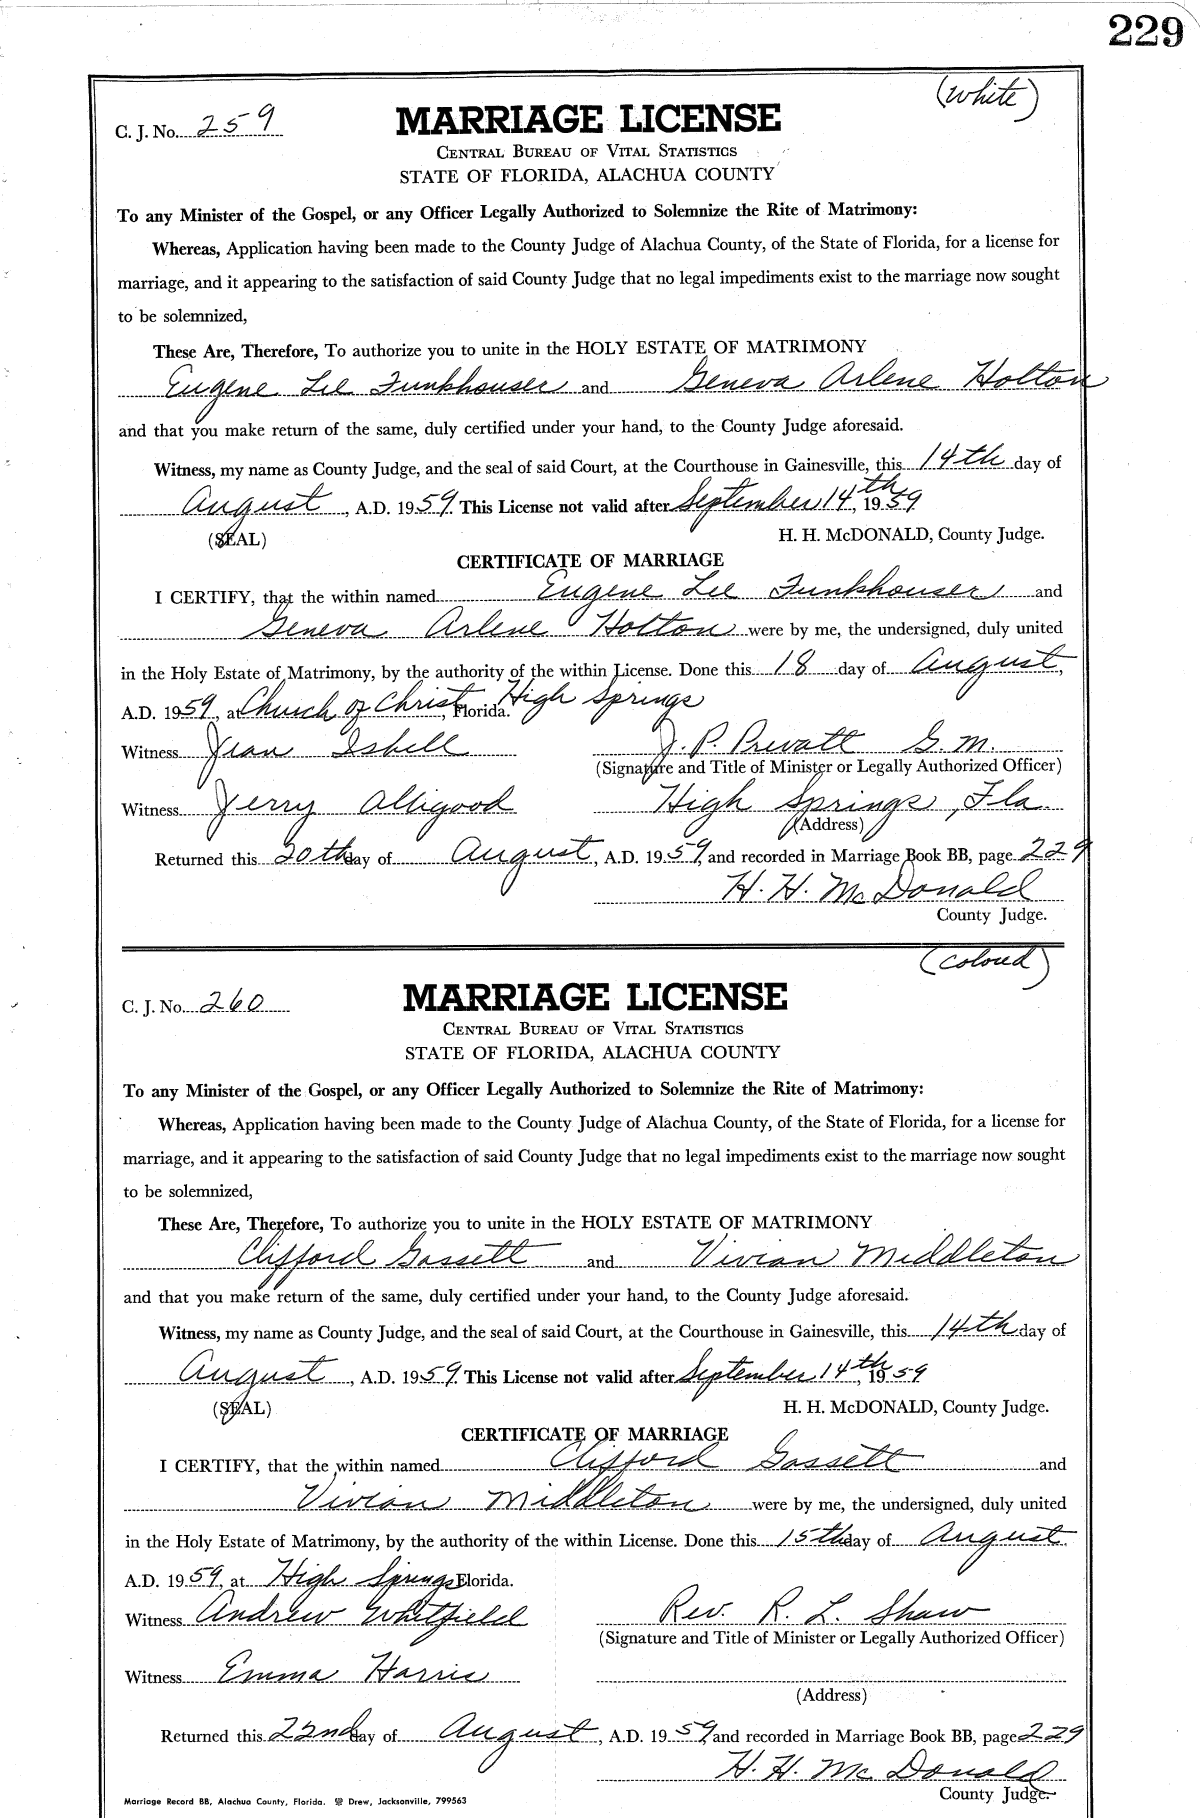 229
(White)
C. J. No. 259
MARRIAGE LICENSE
CENTRAL BUREAU OF VITAL STATISTICS
STATE OF FLORIDA, ALACHUA COUNTY
To any Minister of the Gospel, or any Officer Legally Authorized to Solemnize the Rite of Matrimony:
Whereas, Application having been made to the County Judge of Alachua County, of the State of Florida, for a license for
marriage, and it appearing to the satisfaction of said County Judge that no legal impediments exist to the marriage now sought
to be solemnized,
These Are, Therefore, To authorize you to unite in the HOLY ESTATE OF MATRIMONY
Eugene Lee Funkhouser and Geneva Arlene Holton
and that you make return of the same, duly certified under your hand, to the County Judge aforesaid.
Witness, my name as County Judge, and the seal of said Court, at the Courthouse in Gainesville, this 14th day of
August, A.D. 1959. This License not valid after September 14th, 1959
(SEAL) H. H. McDONALD, County Judge.
CERTIFICATE OF MARRIAGE
I CERTIFY, that the within named Eugene Lee Funkhouser and
Geneva Arlene Holton were by me, the undersigned, duly united
in the Holy Estate of Matrimony, by the authority of the within License. Done this 18 day of August,
A.D. 1959, at Church of Christ, Florida. High Springs
Witness Jean Isbell J. P. Prevatt G. M.
(Signature and Title of Minister or Legally Authorized Officer)
Witness Jerry Alligood High Springs, Fla.
(Address)
Returned this 20th day of August, A.D. 1959, and recorded in Marriage Book BB, page 229
H. H. McDonald
County Judge.
(Colored)
C. J. No. 260
MARRIAGE LICENSE
CENTRAL BUREAU OF VITAL STATISTICS
STATE OF FLORIDA, ALACHUA COUNTY
To any Minister of the Gospel, or any Officer Legally Authorized to Solemnize the Rite of Matrimony:
Whereas, Application having been made to the County Judge of Alachua County, of the State of Florida, for a license for
marriage, and it appearing to the satisfaction of said County Judge that no legal impediments exist to the marriage now sought
to be solemnized,
These Are, Therefore, To authorize you to unite in the HOLY ESTATE OF MATRIMONY
Clifford Gassett and Vivian Middleton
and that you make return of the same, duly certified under your hand, to the County Judge aforesaid.
Witness, my name as County Judge, and the seal of said Court, at the Courthouse in Gainesville, this 14th day of
August, A.D. 1959. This License not valid after September 14th, 1959
(SEAL) H. H. McDONALD, County Judge.
CERTIFICATE OF MARRIAGE
I CERTIFY, that the within named Clifford Gassett and
Vivian Middleton were by me, the undersigned, duly united
in the Holy Estate of Matrimony, by the authority of the within License. Done this 15th day of August
A.D. 1959, at High Springs Florida.
Witness Andrew Whitfield Rev. R. L. Shaw
(Signature and Title of Minister or Legally Authorized Officer)
Witness Emma Harris
(Address)
Returned this 22nd day of August, A.D. 1959, and recorded in Marriage Book BB, page 229
H. H. McDonald
County Judge.
Marriage Record BB, Alachua County, Florida. Drew, Jacksonville, 799563